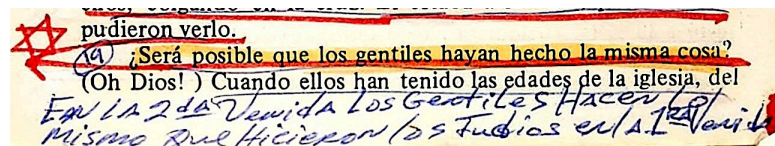 ellos, colgando en la cruz.
pudieron verlo.
19 ¿Será posible que los gentiles hayan hecho la misma cosa?
(Oh Dios! ) Cuando ellos han tenido las edades de la iglesia, del
EN LA 2da Venida Los Gentiles Hacen Lo
Mismo Que Hicieron los Judios en LA 1RA Venida